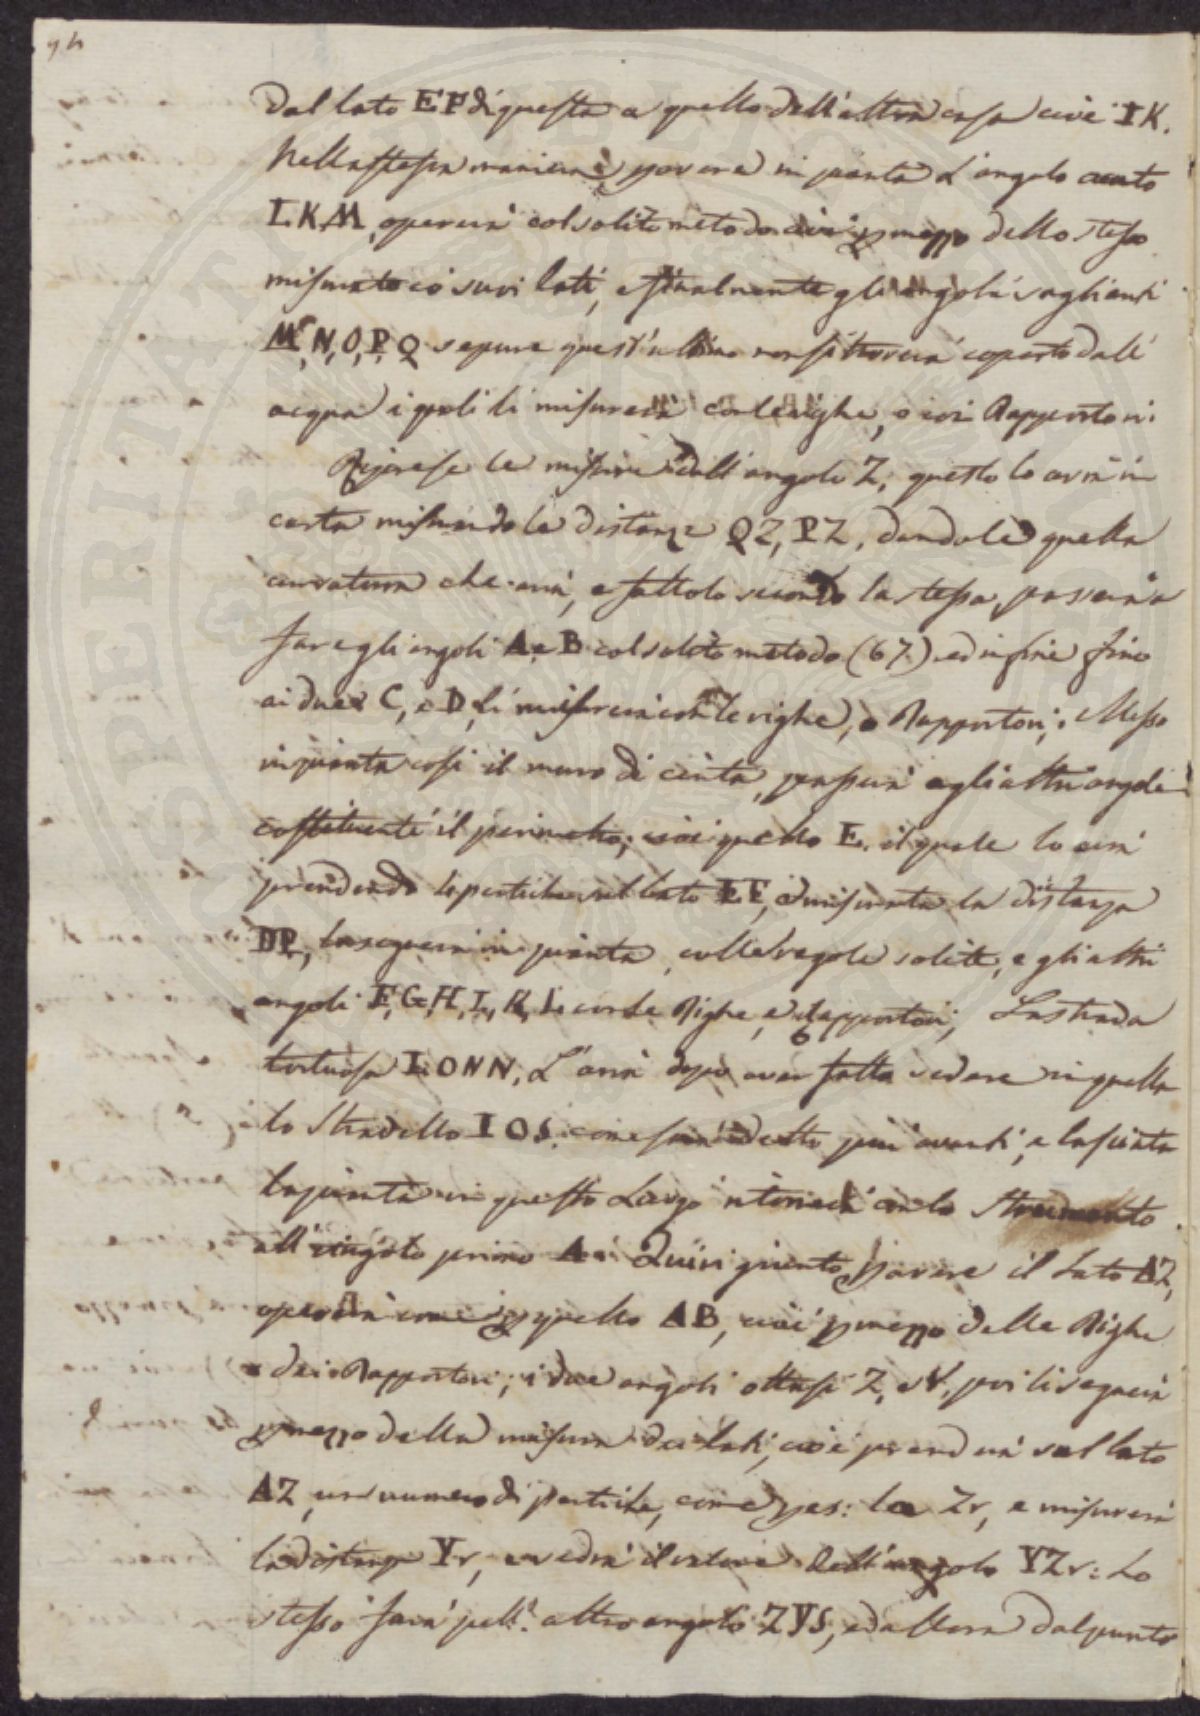 94
dal lato EF di questa a quello dell'altra casa cioè IK.
Nella stessa maniera, p avere in pianta l'angolo acuto
LKM, opererà col solito metodo cioè p mezzo dello stesso
misurato coi suoi lati, e finalmente gli angoli saglienti
M, N, O, P, Q seppure quest'ultimo non si troverà coperto dall'
acqua i quali li misurerà con le righe, o coi Rapportori.
Riprese le misure dall'angolo Z; questo lo avrà in
carta misurando le distanze QZ, PZ, dandole quella
curvatura che avrà, e fattolo secondo la stessa passerà a
fare gli angoli A e B col solito metodo (67) ed infine fino
ai due C, e D, li misurerà con le righe, o Rapportori; Messo
in pianta così il muro di cinta, passerà agli altri angoli
costituenti il perimetro, cioè quello E. il quale lo avrà
prendendo le pertiche sul lato EF, e misurata la distanza
DP, la segnerà in pianta, colle regole solite, e gli altri
angoli F, G, H, I, K, L con le Righe, e Rapportori, La strada
tortuosa LONN, L'avrà dopo aver fatto vedere in quella
lo Stradello IOS. come sarà detto più avanti, e lasciata
la pianta in questo Luogo ritornerà con lo Strumento
all'angolo primo A. Quivi giunto p avere il lato AZ,
opererà come p quello AB, cioè p mezzo delle Righe
e dei Rapportori; i due angoli ottusi Z, e Y, poi li segnerà
p mezzo della misura dei lati, cioè prenderà sul lato
AZ, un numero di pertiche, come p es: la Zr, e misurerà
la distanza Yr, e vedrà il valore dell'angolo YZr: Lo
stesso farà pell' altro angolo ZYS, ed allora dal punto